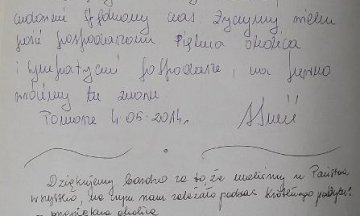 cudowni Spędzony czas. Życzymy wielu
gości gospodarzom Piękna okolica
i sympatyczni gospodarze, na pewno
wrócimy tu znowu
Tomasze 4.05.2014r.
Dziękujemy bardzo za to że mieliśmy u Państwa
wszystko, na czym nam zależało podczas krótkiego pobytu:
przepiękna okolica